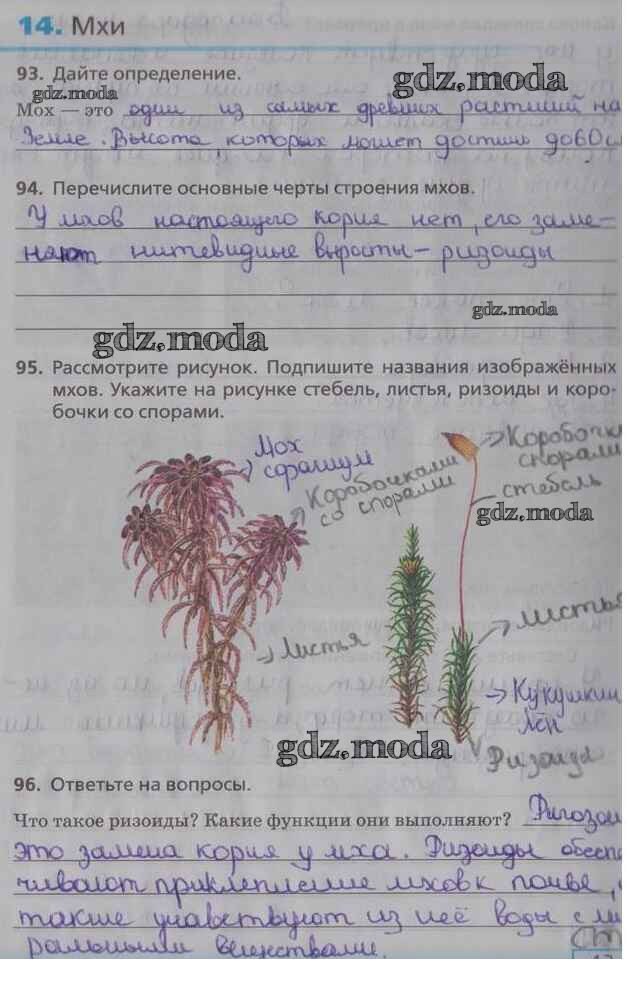 14. Мхи
93. Дайте определение.
gdz.moda
gdz.moda
Мох — это один из самых древних растиний на
Земле. Высота которых может достичь до 60 с
94. Перечислите основные черты строения мхов.
У мхов настоящего корня нет, его заме-
няют нитевидные выросты - ризоиды
gdz.moda
gdz.moda
95. Рассмотрите рисунок. Подпишите названия изображённых
мхов. Укажите на рисунке стебель, листья, ризоиды и коро-
бочки со спорами.
Мох
сфагнум
Коробочками
со спорами
Коробочк
спорами
стебель
gdz.moda
Листья
листья
Кукушкин
лён
gdz.moda
Ризоиды
96. Ответьте на вопросы.
Что такое ризоиды? Какие функции они выполняют?
это замена корня у мха. Ризоиды обесп
чивают приклепление мхов к почве,
также учавствуют из неё воды с ми
ральными веществами.